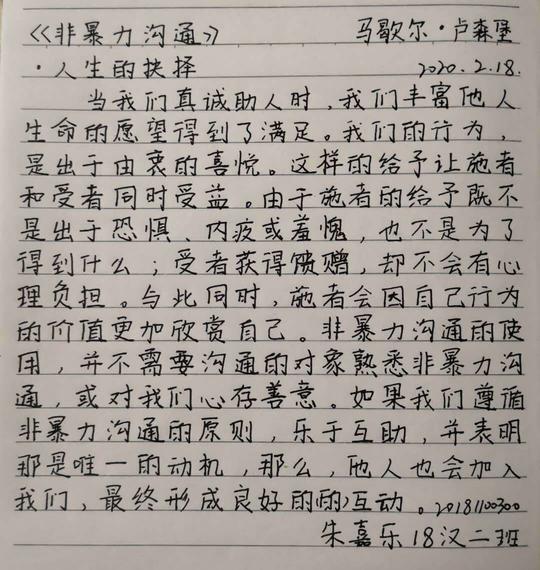 《非暴力沟通》 马歇尔·卢森堡
·人生的抉择 2020.2.18.
当我们真诚助人时，我们丰富他人
生命的愿望得到了满足。我们的行为，
是出于由衷的喜悦。这样的给予让施者
和受者同时受益。由于施者的给予既不
是出于恐惧、内疚或羞愧，也不是为了
得到什么；受者获得馈赠，却不会有心
理负担。与此同时，施者会因自己行为
的价值更加欣赏自己。非暴力沟通的使
用，并不需要沟通的对象熟悉非暴力沟
通，或对我们心存善意。如果我们遵循
非暴力沟通的原则，乐于互助，并表明
那是唯一的动机，那么，他人也会加入
我们，最终形成良好的(的)互动。20181100300
朱嘉乐18汉二班